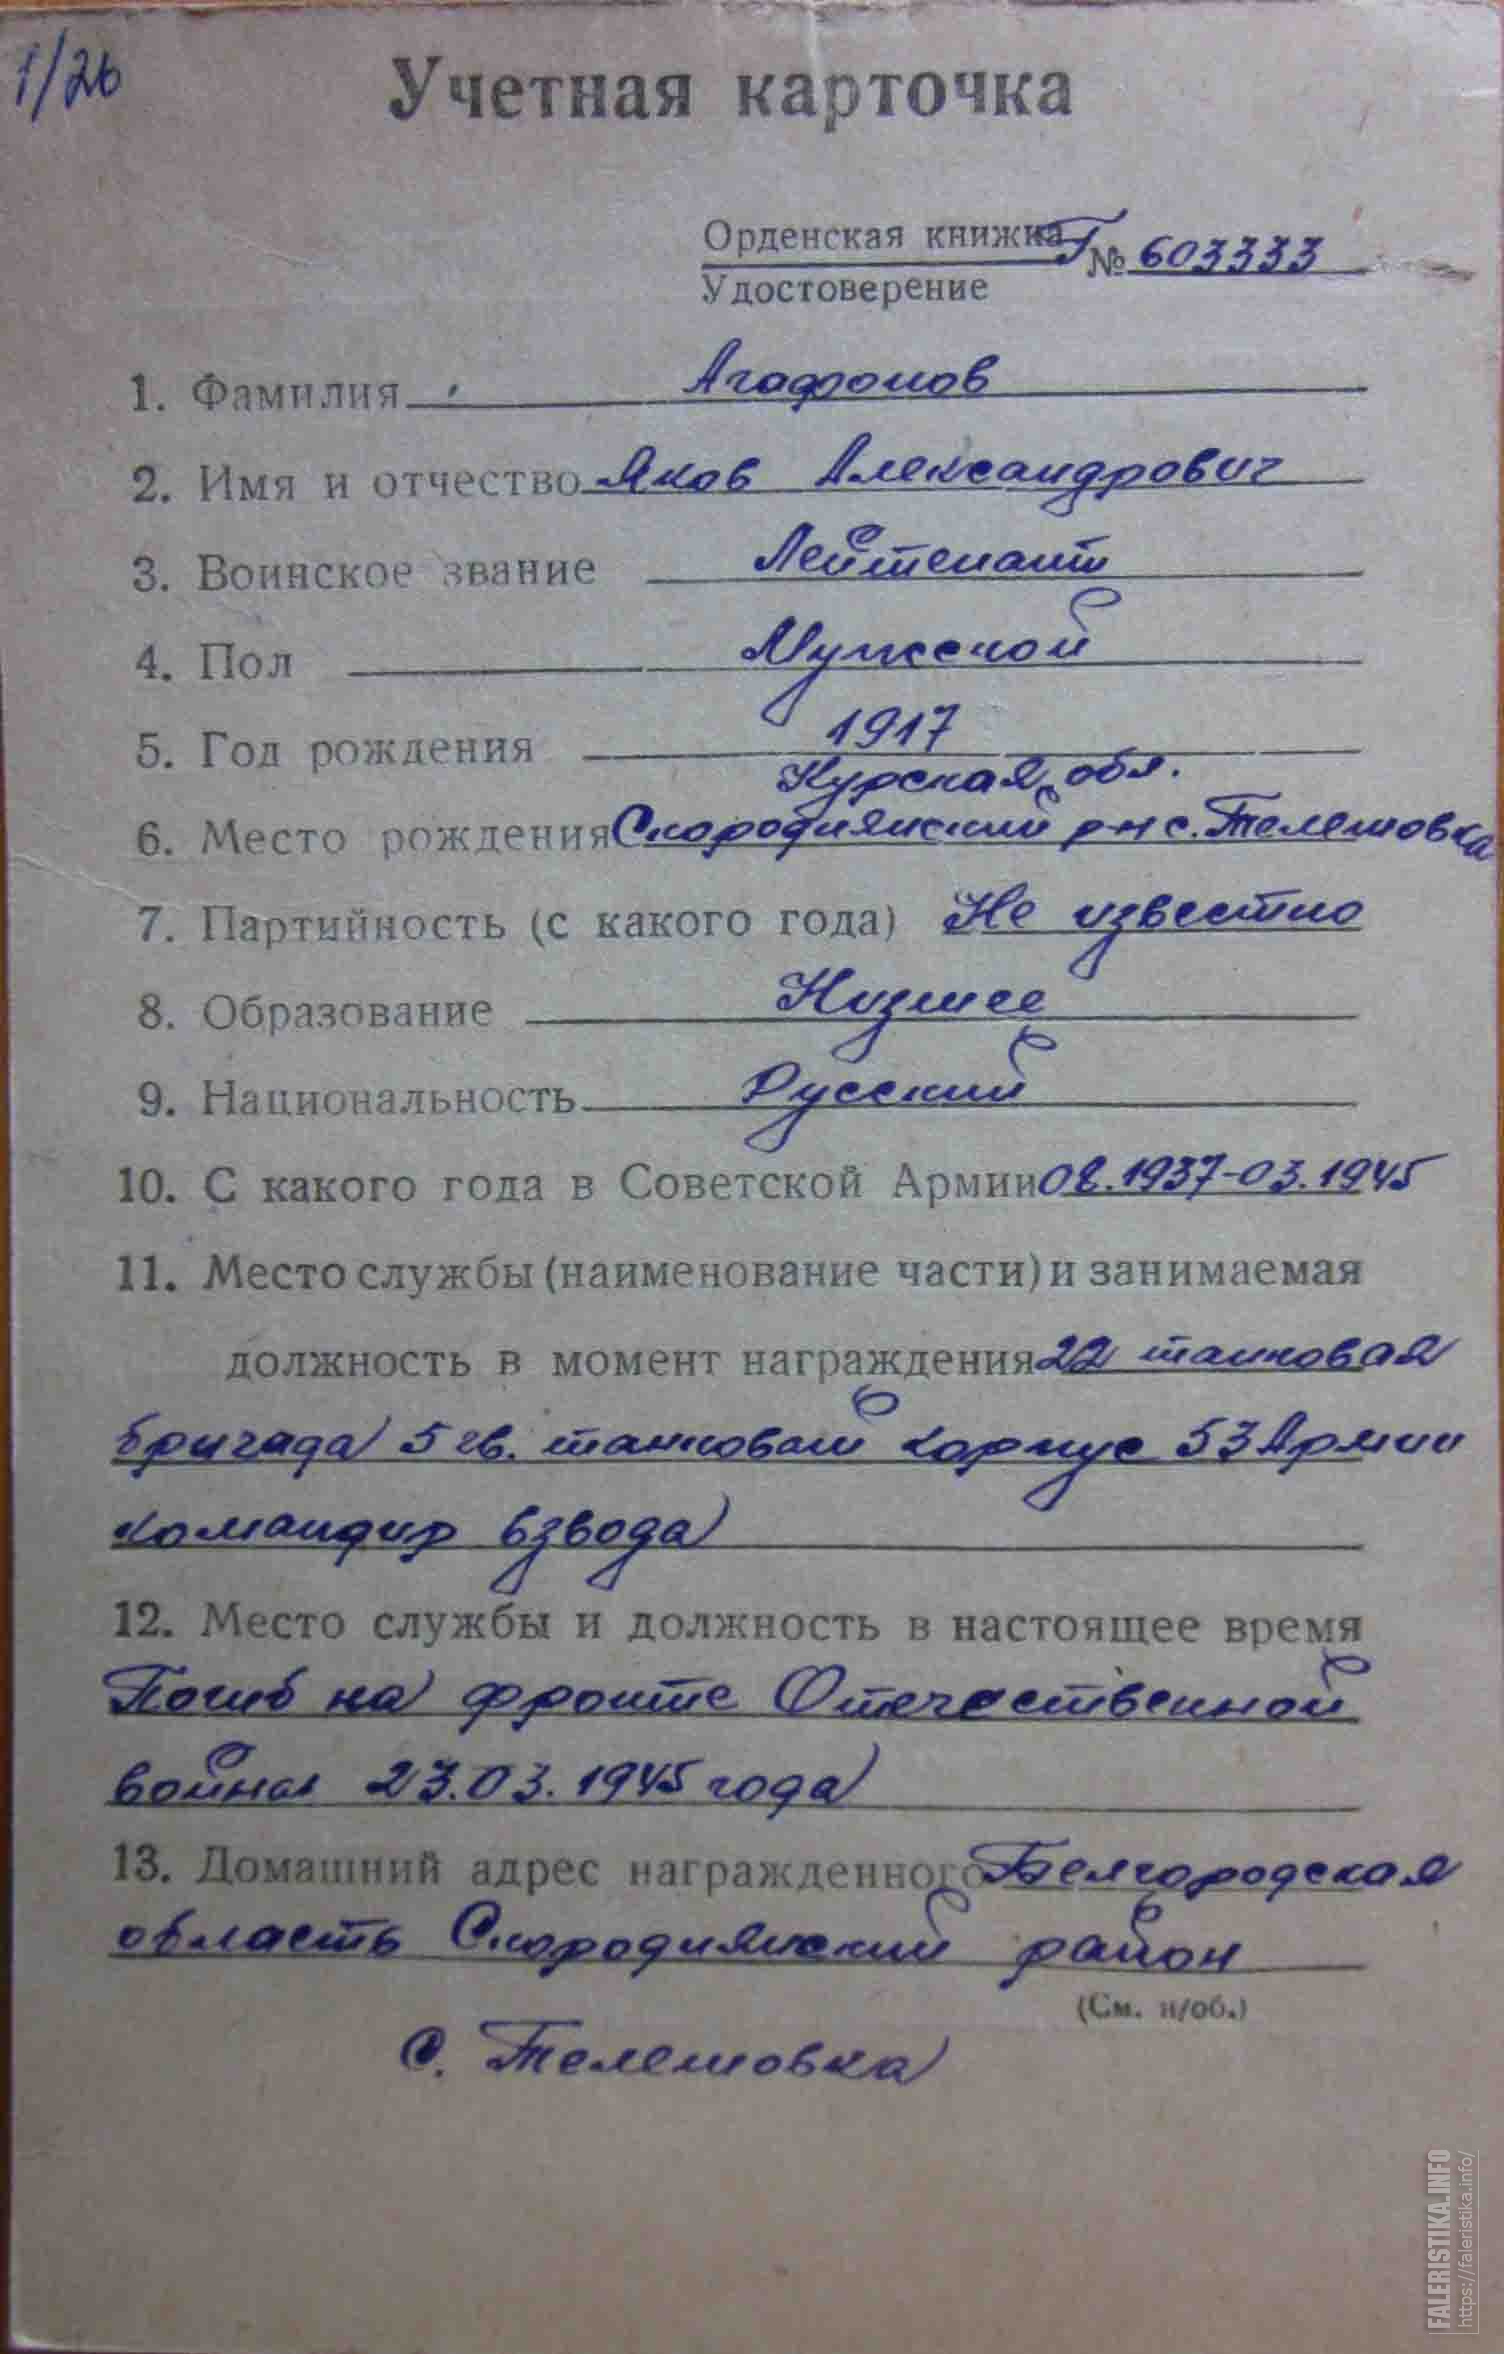 1/26
Учетная карточка
Орденская книжка Г № 603333
Удостоверение
1. Фамилия Агафонов
2. Имя и отчество Яков Александрович
3. Воинское звание Лейтенант
4. Пол Мужской
5. Год рождения 1917
Курская обл.
6. Место рождения Скороднянский р-н с. Телешовка
7. Партийность (с какого года) Не известно
8. Образование Низшее
9. Национальность Русский
10. С какого года в Советской Армии 08.1937-03.1945
11. Место службы (наименование части) и занимаемая
должность в момент награждения 22 танковая
бригада 5 гв. танковый корпус 53 Армии
командир взвода
12. Место службы и должность в настоящее время
Погиб на фронте Отечественной
войны 23.03.1945 года
13. Домашний адрес награжденного Белгородская
область Скороднянский район
(См. н/об.)
с. Телешовка
FALERISTIKA.INFO
https://faleristika.info/